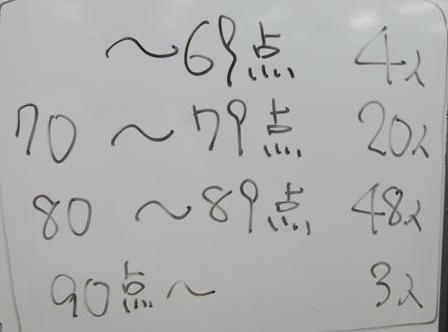 ～69点 4人
70～79点 20人
80～89点 48人
90点～ 3人